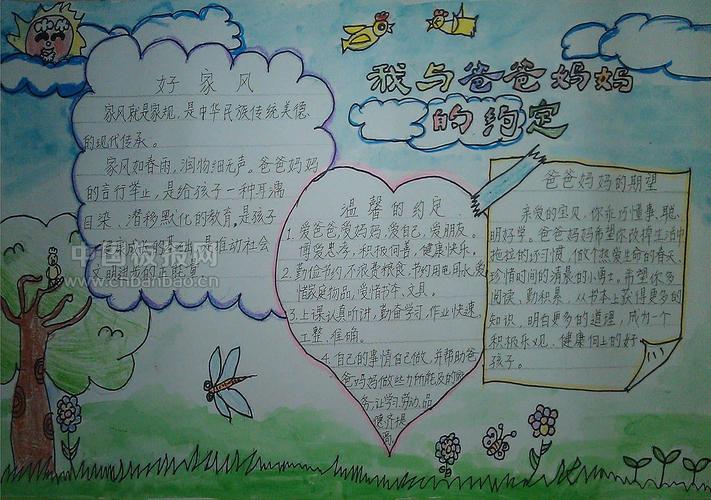 我与爸爸妈妈
的约定
好家风
家风就是家规，是中华民族传统美德
的现代传承。
家风如春雨，润物细无声。爸爸妈妈
的言行举止，是给孩子一种耳濡
目染、潜移默化的教育，是孩子
是推动社会
文明进步的正能量
中国板报网
www.cnbanbao.cn
温馨的约定
1.爱爸爸，爱妈妈，爱自己，爱朋友。
博爱忠孝，积极向善，健康快乐。
2.勤俭节约不浪费粮食，节约用电用水，爱
惜家庭物品，爱惜书本、文具。
3.上课认真听讲，勤奋学习，作业快速、
工整、准确。
4.自己的事情自己做，并帮助爸
爸妈妈做些力所能及的家
务，让学习、劳动、品
德齐提
高
爸爸妈妈的期望
亲爱的宝贝，你乖巧懂事、聪
明好学。爸爸妈妈希望你改掉生活中
拖拉的坏习惯，做个热爱生命的春天、
珍惜时间的清晨的小勇士。希望你多
阅读，勤积累，从书本上获得更多的
知识，明白更多的道理，成为一个
积极乐观、健康向上的好
孩子。